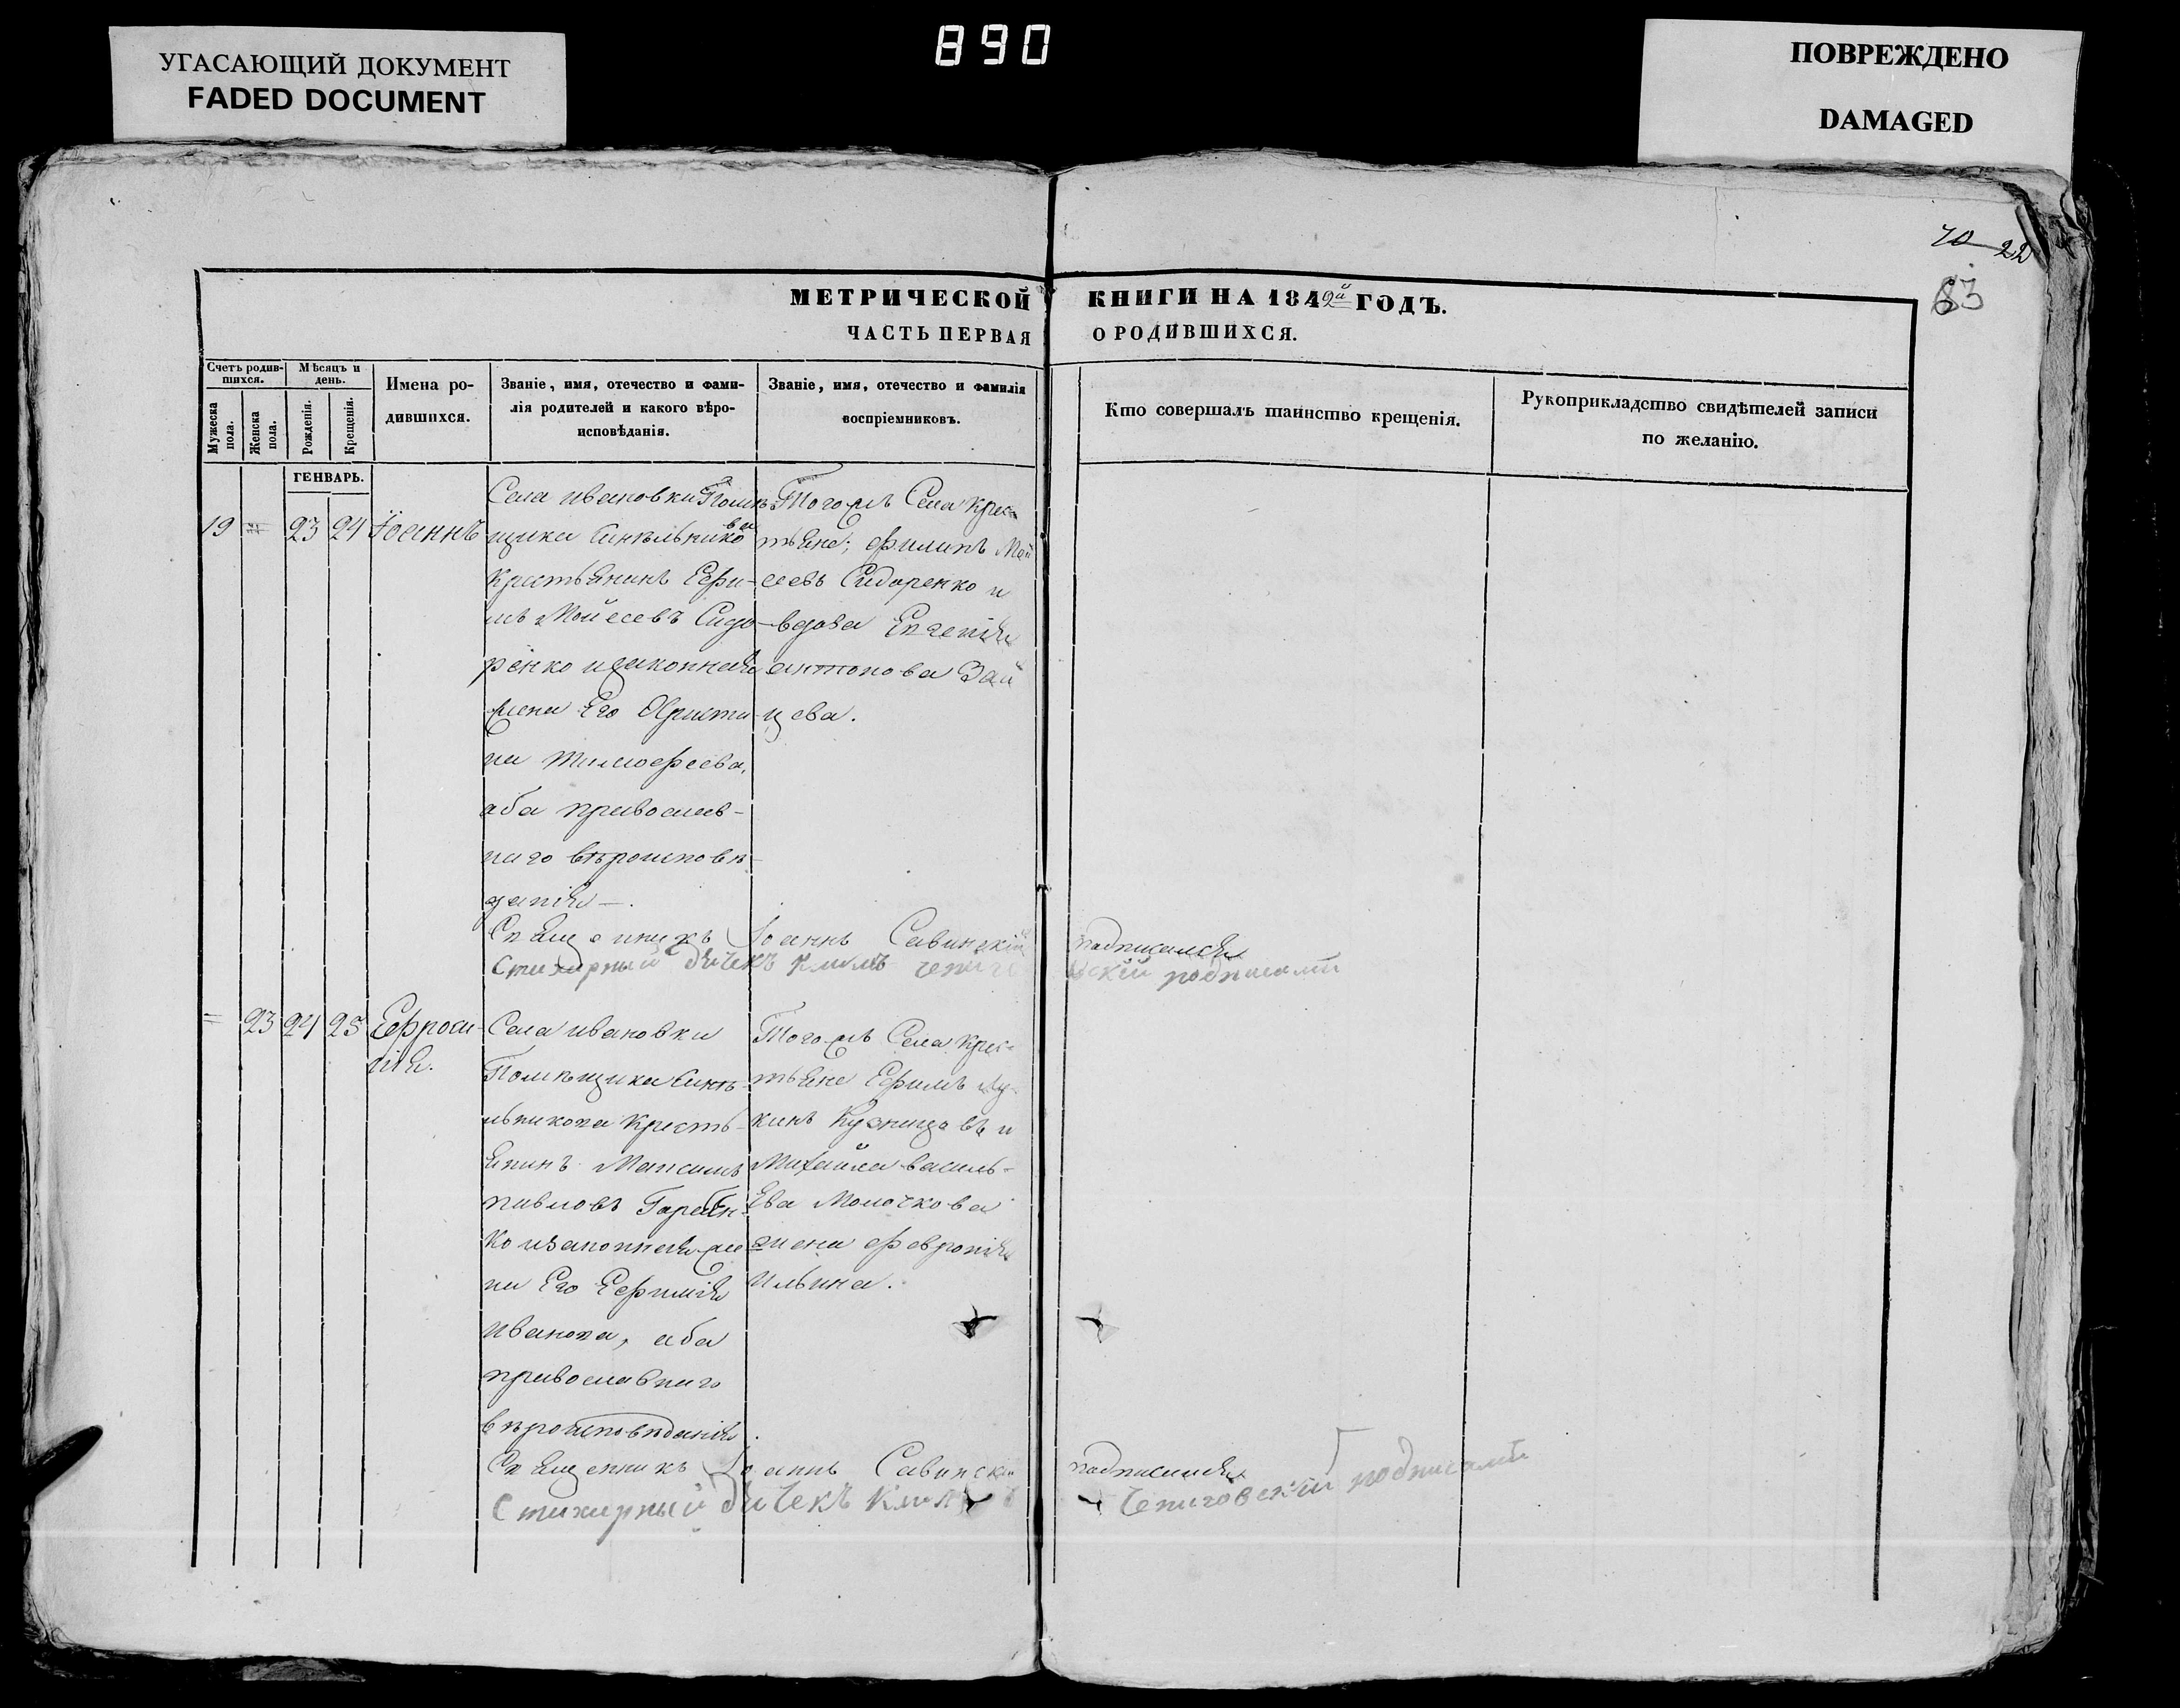 890
УГАСАЮЩИЙ ДОКУМЕНТ
FADED DOCUMENT
ПОВРЕЖДЕНО
DAMAGED
70 22
63
МЕТРИЧЕСКОЙ КНИГИ НА 1842й ГОДЪ.
ЧАСТЬ ПЕРВАЯ О РОДИВШИХСЯ.
Счетъ родив-
шихся.
Мужеска
пола.
Женска
пола.
Мѣсяцъ и
день.
Рожденія.
Крещенія.
Имена ро-
дившихся.
Званіе, имя, отечество и фами-
лія родителей и какого вѣро-
исповѣданія.
Званіе, имя, отечество и фамилія
воспріемниковъ.
Кто совершалъ таинство крещенія.
Рукоприкладство свидѣтелей записи
по желанію.
ГЕНВАРЬ.
19 = 23 24 Іоаннъ
Села ивановки Помѣ
щика Синѣльнико
ва
крестьянинъ Ефи-
мъ Мойсеевъ Сидо-
ренко изаконная
жена Его Христи-
на Тимофеева,
аба православ-
наго вѣроисповѣ-
данія.
Тогожъ Села крес-
тьяне; Филипъ Мой
сеевъ Сидоренко и
вдова Евгенія
антонова Зай
цева.
Священикъ Іоаннъ Савинскій подписался
Стихирный дичекъ Климъ подписалъ
= 23 24 25 Ефроси-
нія.
Села ивановки
Помѣщика Синѣ-
льникова кресть-
янинъ Максимъ
павловъ
ко изаконная же
на Его Ефимія
иванова, аба
православнаго
вѣроисповѣданія.
Тогожъ Села крес-
тьяне Ефимъ Лу-
кинъ Кузнецовъ и
Михайла василь-
Ева Молочкова
жена Февронія
Ильина.
Священникъ Іоаннъ Савинскій подписался
Стихирный дичекъ Клим Чепиговский подписалъ